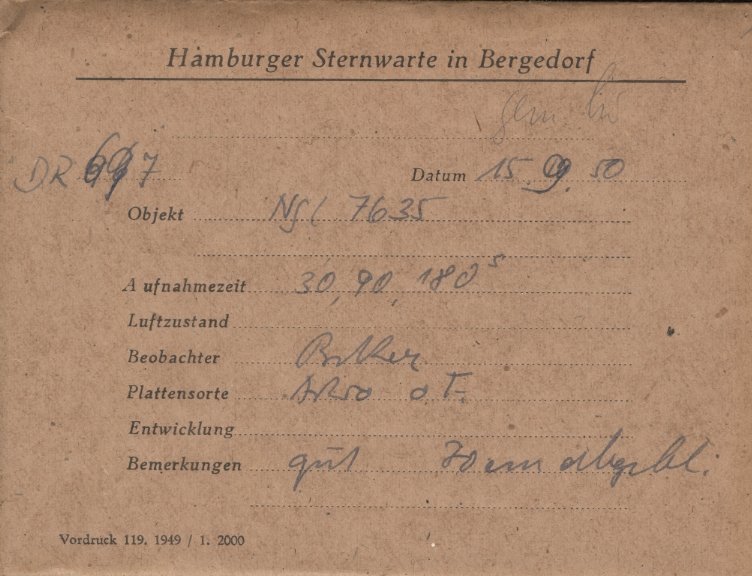 Hamburger Sternwarte in Bergedorf
DR 7 Datum 15. 9. 50
Objekt NGC 7635
Aufnahmezeit 30, 90, 180 s
Luftzustand
Beobachter
Plattensorte o. F.
Entwicklung
Bemerkungen gut
Vordruck 119. 1949 / 1. 2000